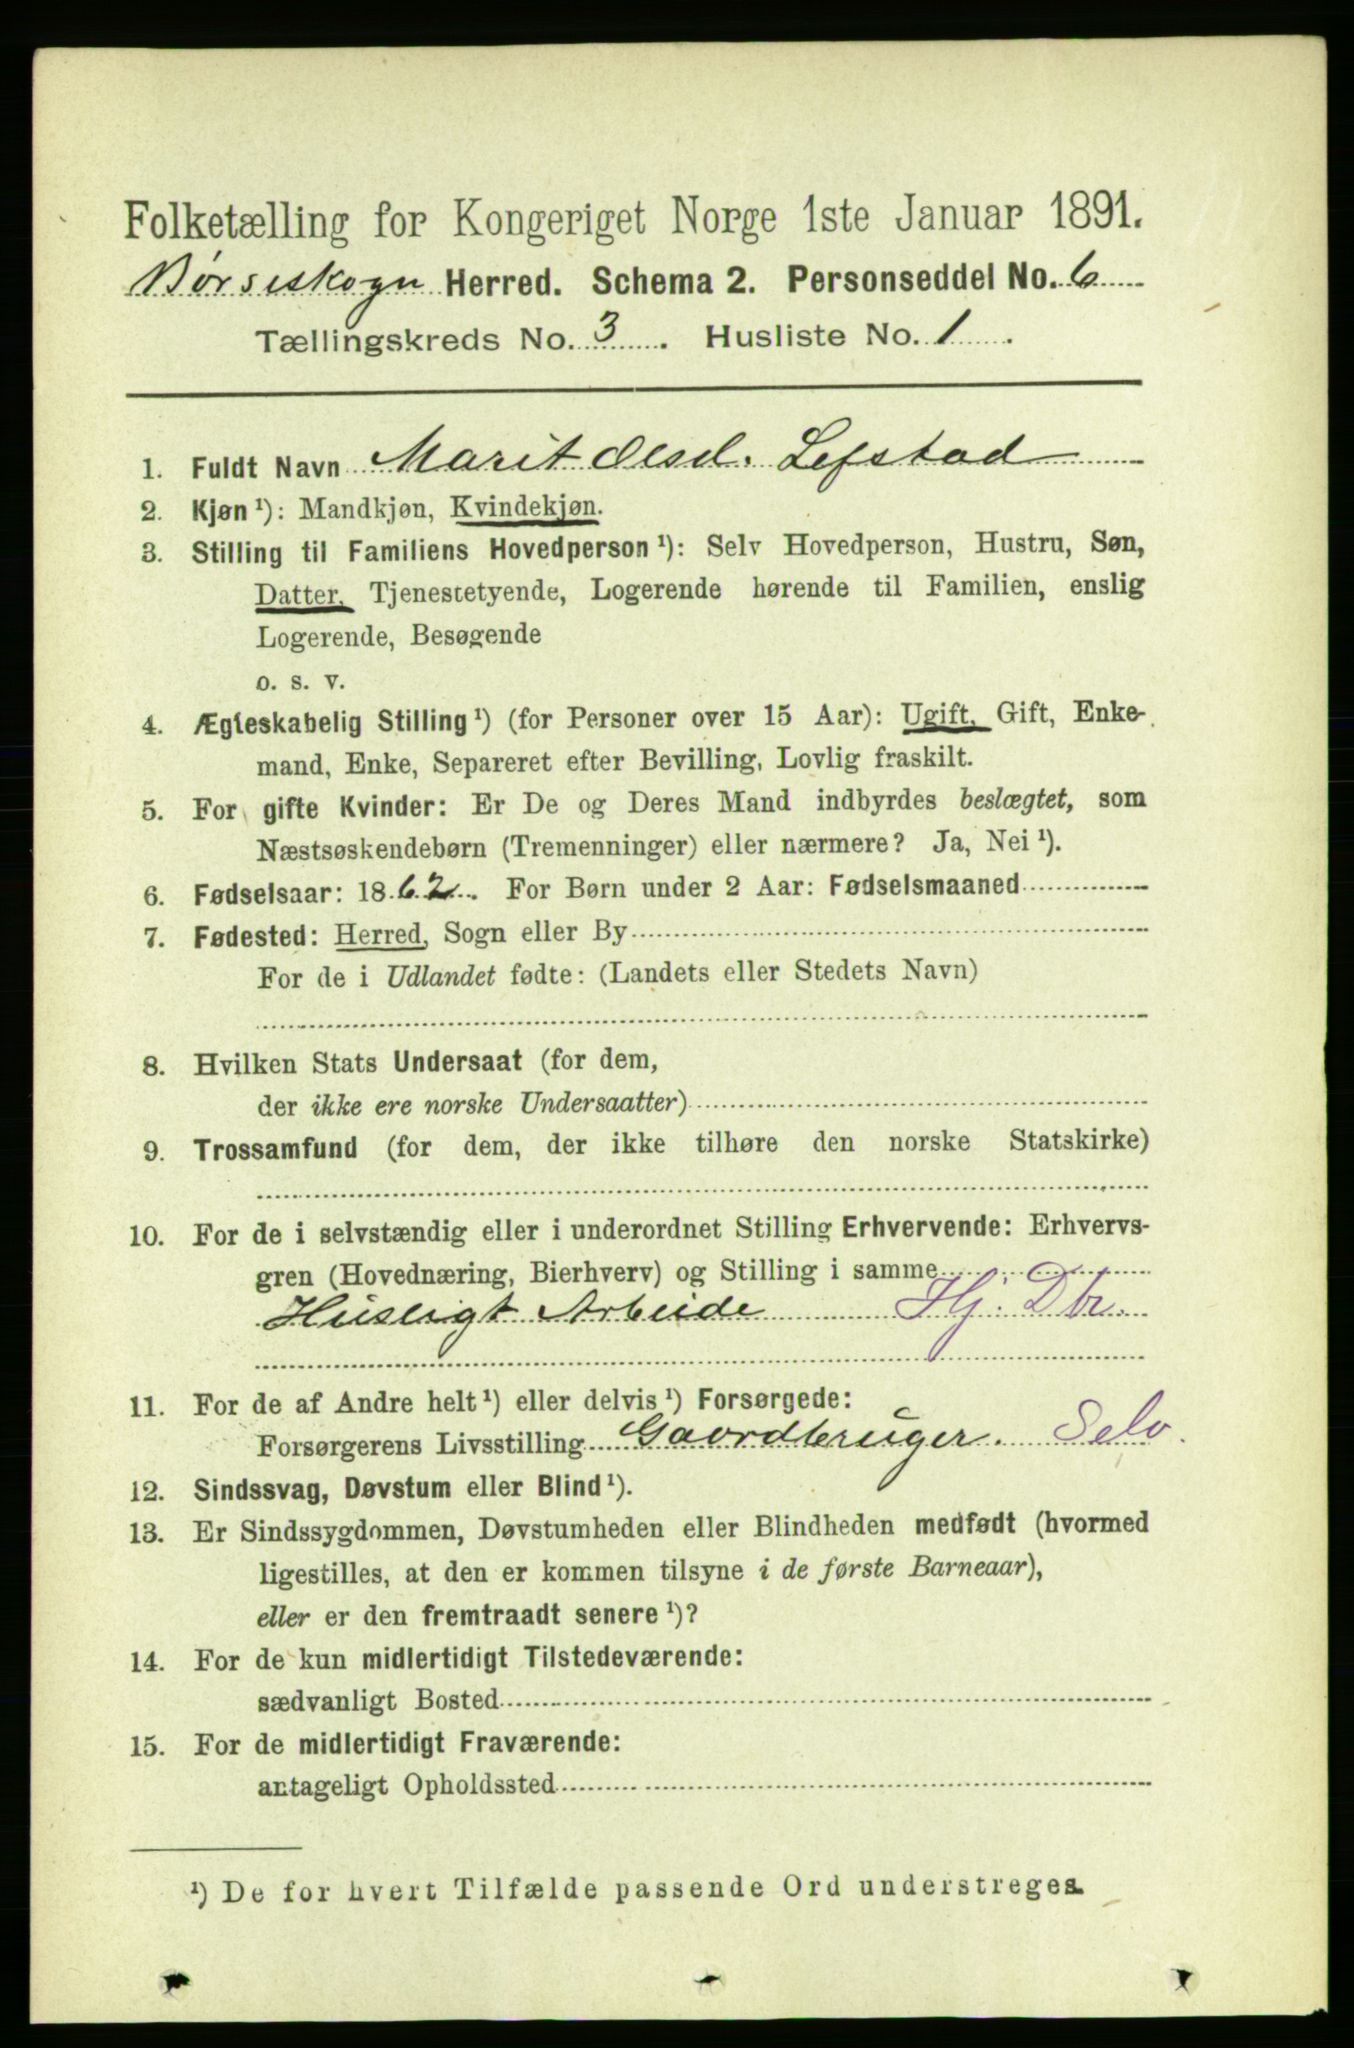 Folketælling for Kongeriget Norge 1ste Januar 1891.
Børseskogn Herred. Schema 2. Personseddel No. 6
Tællingskreds No. 3. Husliste No. 1.
1. Fuldt Navn Marit Olsd. Lefstad
2. Kjøn ¹): Mandkjøn, Kvindekjøn.
3. Stilling til Familiens Hovedperson ¹): Selv Hovedperson, Hustru, Søn,
Datter, Tjenestetyende, Logerende hørende til Familien, enslig
Logerende, Besøgende
o. s. v.
4. Ægteskabelig Stilling ¹) (for Personer over 15 Aar): Ugift, Gift, Enke-
mand, Enke, Separeret efter Bevilling, Lovlig fraskilt.
5. For gifte Kvinder: Er De og Deres Mand indbyrdes beslægtet, som
Næstsøskendebørn (Tremenninger) eller nærmere? Ja, Nei ¹).
6. Fødselsaar: 1862. For Børn under 2 Aar: Fødselsmaaned
7. Fødested: Herred, Sogn eller By
For de i Udlandet fødte: (Landets eller Stedets Navn)
8. Hvilken Stats Undersaat (for dem,
der ikke ere norske Undersaatter)
9. Trossamfund (for dem, der ikke tilhøre den norske Statskirke)
10. For de i selvstændig eller i underordnet Stilling Erhvervende: Erhvervs-
gren (Hovednæring, Bierhverv) og Stilling i samme
Husligt Arbeide Hj. Dtr.
11. For de af Andre helt ¹) eller delvis ¹) Forsørgede:
Forsørgerens Livsstilling Gaardbruger. Selv.
12. Sindssvag, Døvstum eller Blind ¹).
13. Er Sindssygdommen, Døvstumheden eller Blindheden medfødt (hvormed
ligestilles, at den er kommen tilsyne i de første Barneaar),
eller er den fremtraadt senere ¹)?
14. For de kun midlertidigt Tilstedeværende:
sædvanligt Bosted
15. For de midlertidigt Fraværende:
antageligt Opholdssted
¹) De for hvert Tilfælde passende Ord understreges.